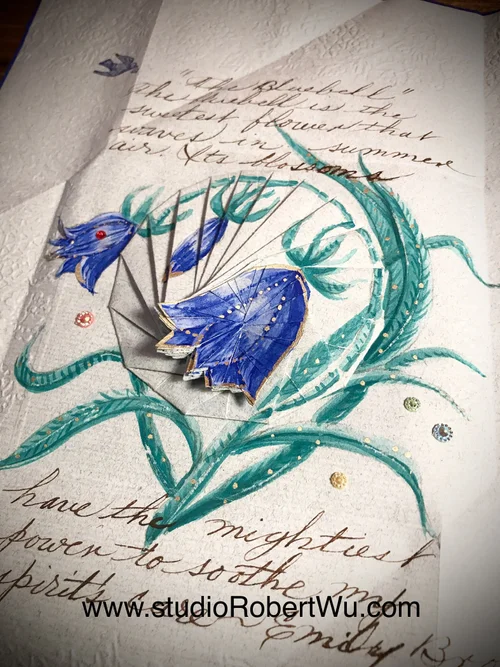 "The Bluebell"
the bluebell is the
sweetest flower that
waves in summer
air. Its blossoms
have the mightiest
power to soothe my
spirit's care
Emily B
www.studioRobertWu.com